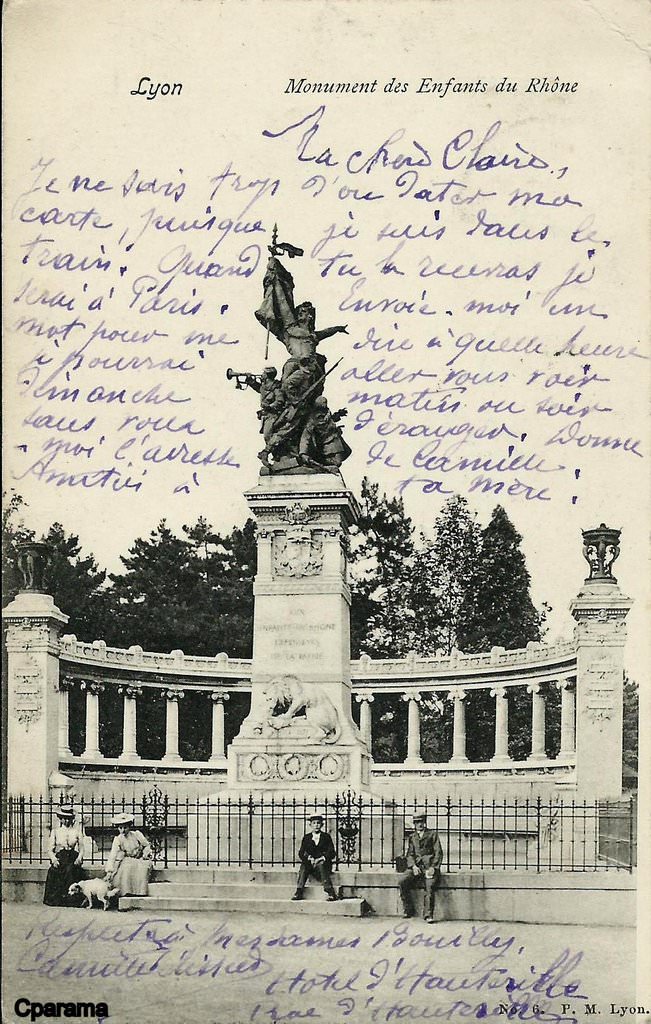 Lyon Monument des Enfants du Rhône
Ma chère Claire,
Je ne sais trop d'où dater ma
carte, puisque je suis dans le
train. Quand tu la recevras je
serai à Paris. Envoie-moi un
mot pour me dire à quelle heure
je pourrai aller vous voir
Dimanche matin ou soir
sans vous déranger. Donne
-moi l'adresse de Camille.
Amitiés à ta mère!
AUX
ENFANTS DU RHÔNE
DÉFENSEURS
DE LA PATRIE
Respects à Mesdames Bouilly.
Camille
Hotel d'Hauteville
rue d'Hauteville
No. 6. P. M. Lyon.
Cparama